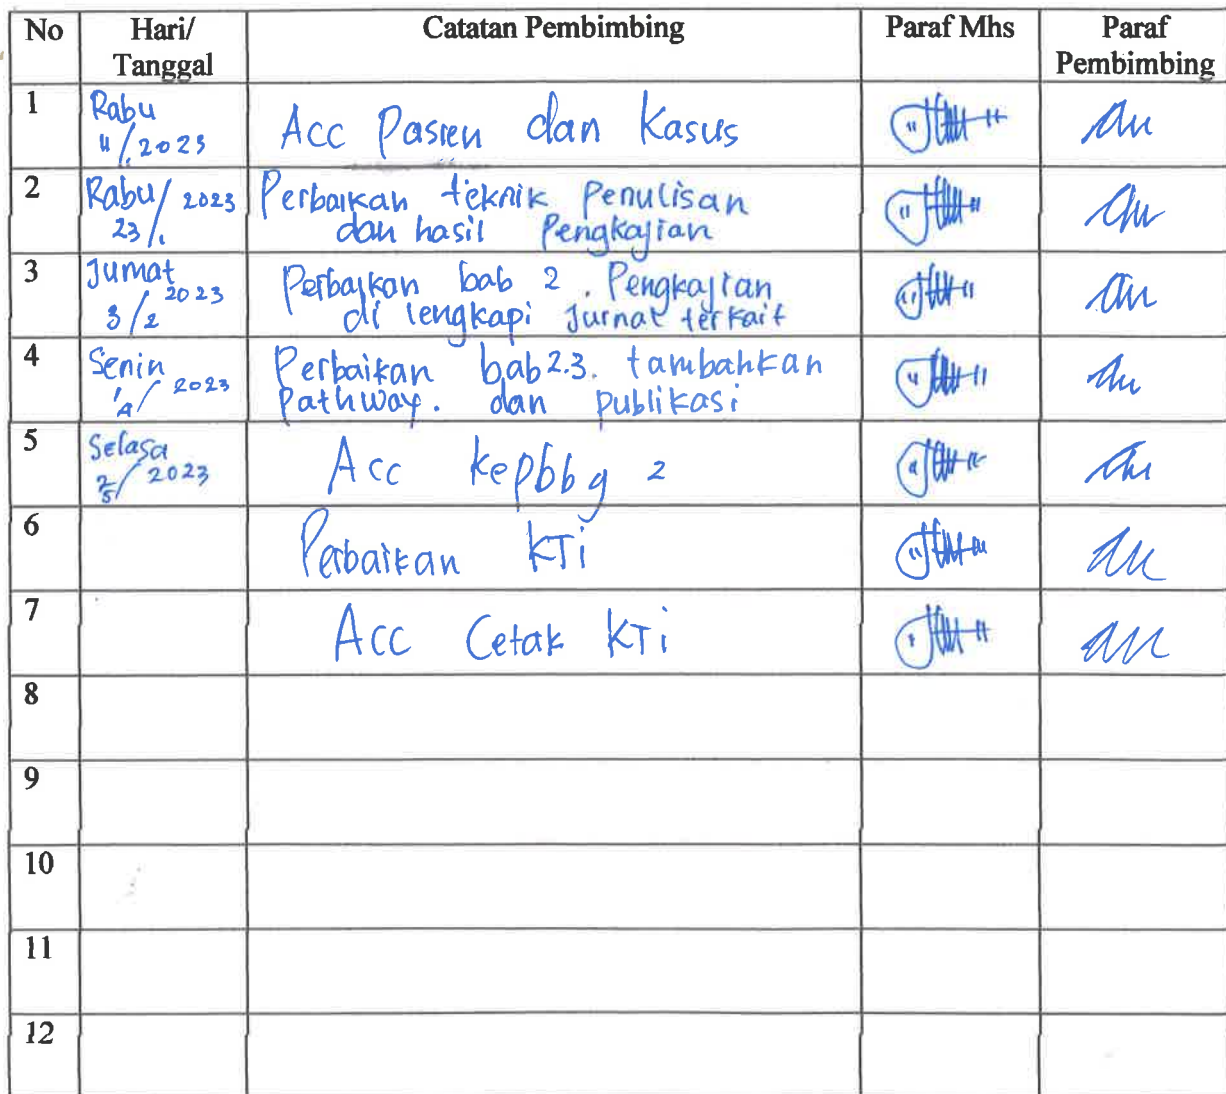 No Hari/ Tanggal Catatan Pembimbing Paraf Mhs Paraf Pembimbing
1 Rabu 11/1 2023 Acc Pasien dan Kasus
2 Rabu 23/1 2023 Perbaikan teknik Penulisan
dan hasil Pengkajian
3 Jumat 3/2 2023 Perbaikan bab 2. Pengkajian
di lengkapi Jurnal terkait
4 Senin 2023 Perbaikan bab 2.3. tambahkan
Pathway. dan publikasi
5 Selasa 2/5 2023 Acc kepbbg 2
6 Perbaikan KTi
7 Acc Cetak KTi
8
9
10
11
12